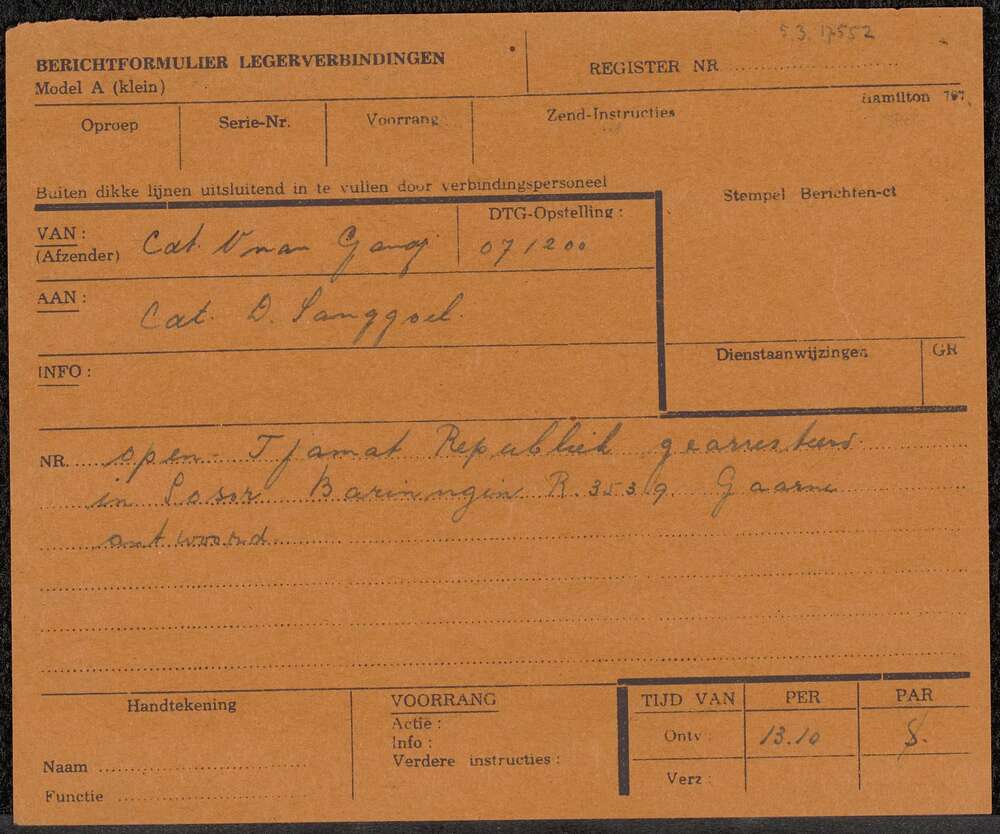 5.3. 17552
BERICHTFORMULIER LEGERVERBINDINGEN
Model A (klein)
REGISTER NR
Hamilton 797
Oproep Serie-Nr. Voorrang Zend-Instructies
Buiten dikke lijnen uitsluitend in te vullen door verbindingspersoneel
Stempel Berichten-ct
VAN :
(Afzender) Cat.
DTG-Opstelling :
071200
AAN :
Cat. D. Sanggoel.
Dienstaanwijzingen GR
INFO :
NR. open - Tjamat Republiek gearresteerd
in Sosor Bariningin R. 3539. Gaarne
antwoord
Handtekening
Naam
Functie
VOORRANG
Actie :
Info :
Verdere instructies :
TIJD VAN PER PAR
Ontv : 13.10 S.
Verz :